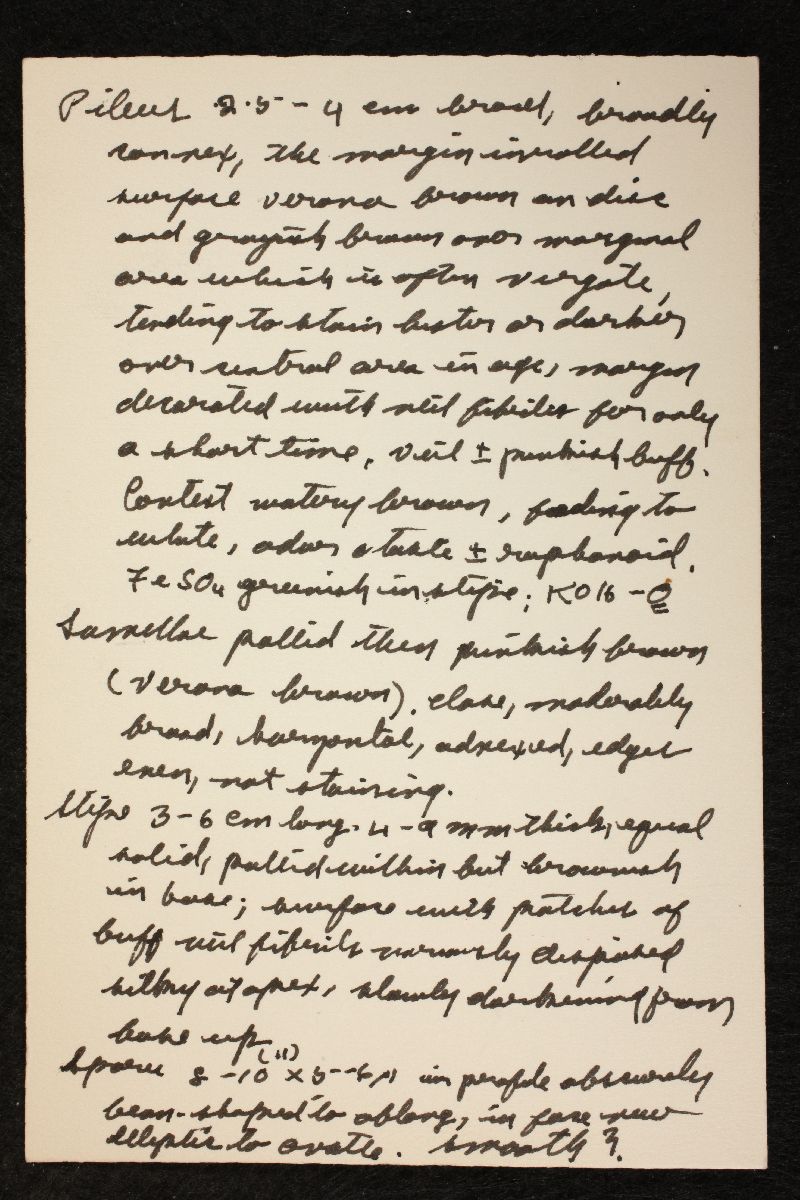 Pileus 2.5-4 cm broad, broadly
convex, the margin inrolled
surface verona brown on disc
and grayish brown over marginal
area which is often virgate,
tending to stain bister or darker
over central area in age, margin
decorated with veil fibrils for only
a short time, veil ± pinkish buff.
Context watery brown, fading to
white, odor & taste ± raphanoid.
FeSO4 greenish in stipe; KOH - O
Lamellae pallid then pinkish brown
(verona brown). close, moderately
broad, horizontal, adnexed, edges
even, not staining.
Stipe 3-6 cm long. 4-9 mm thick, equal
solid, pallid within but brownish
in base; surface with patches of
buff veil fibrils variously disposed
silky at apex, slowly darkening from
base up
Spores 8-10 (11) x 5-6 µ in profile obscurely
bean-shaped to oblong, in face view
elliptic to ovate. smooth?